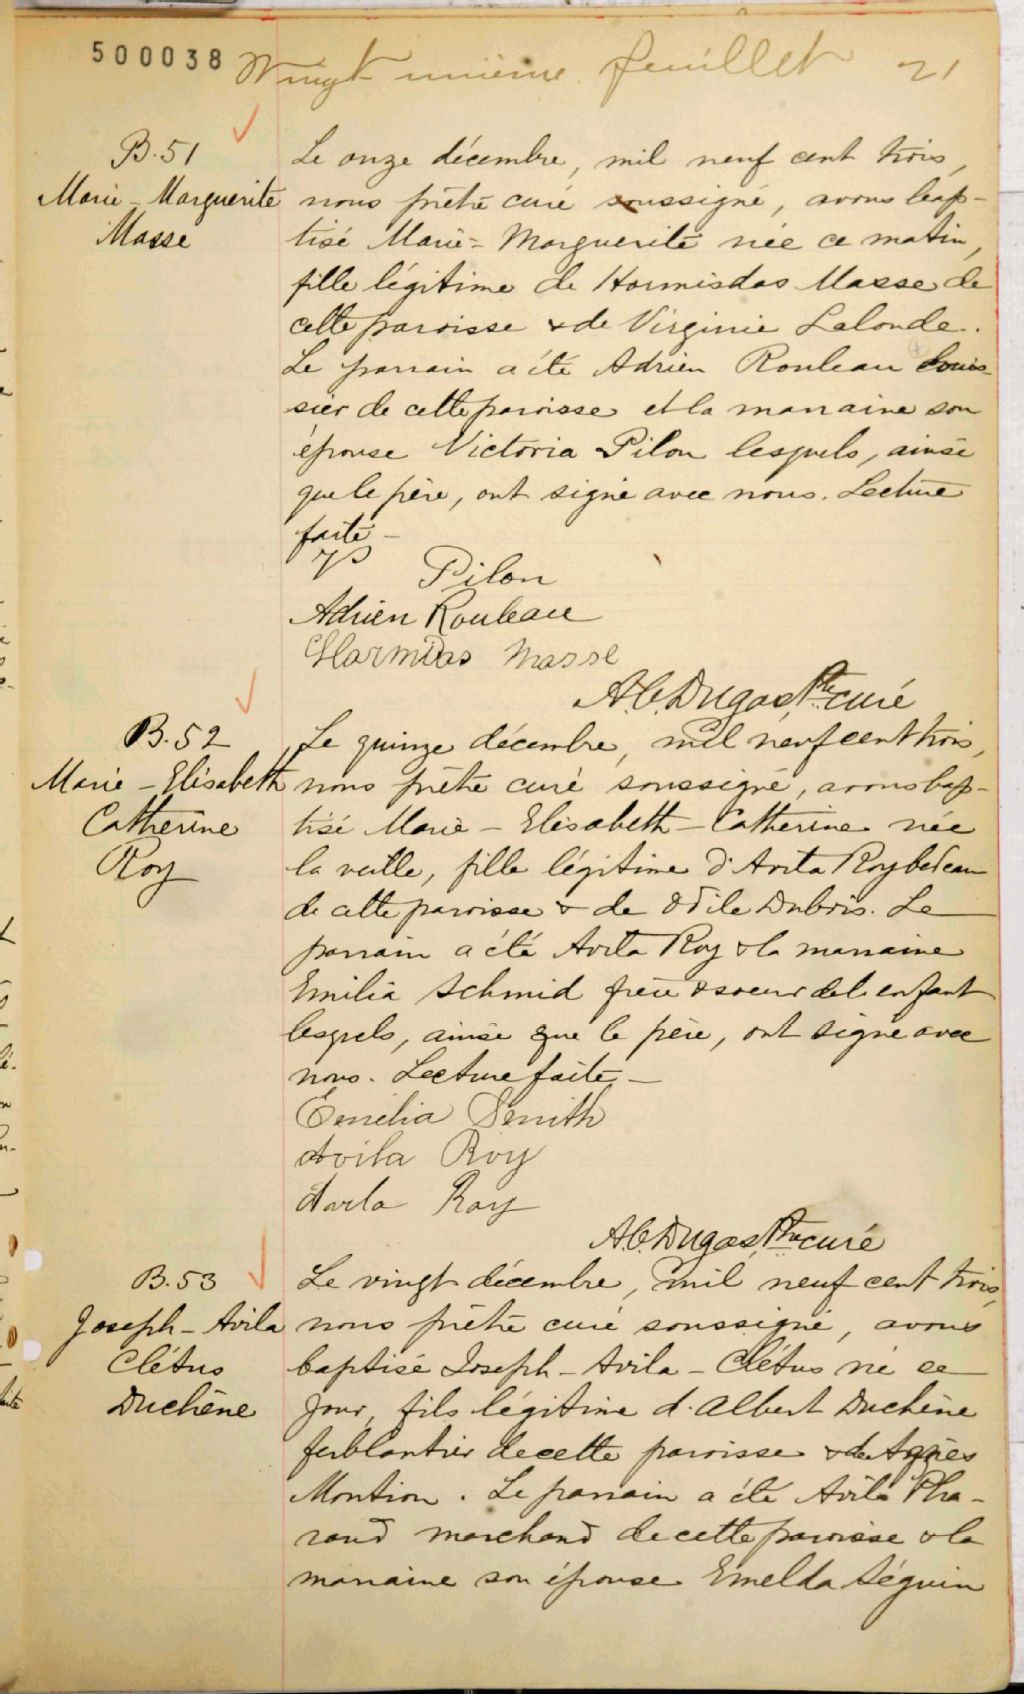 500038 Vingt unième feuillet 21
B.51
Marie-Marguerite
Masse
Le onze décembre, mil neuf cent trois,
nous prêtre curé soussigné, avons bap-
tisé Marie-Marguerite née ce matin,
fille légitime de Hormisdas Masse de
cette paroisse & de Virginie Lalonde.
Le parrain a été Adrien Rouleau
sier de cette paroisse et la marraine son
épouse Victoria Pilon lesquels, ainsi
que le père, ont signé avec nous. Lecture
faite –
Pilon
Adrien Rouleau
Harmidas Masse
A.C. Dugas, Ptre curé
B.52
Marie-Elisabeth
Catherine
Roy
Le quinze décembre, mil neuf cent trois,
nous prêtre curé soussigné, avons bap-
tisé Marie-Elisabeth-Catherine née
la veille, fille légitime d'Avila Roy
de cette paroisse & de Odile Dubois. Le
parrain a été Avila Roy & la marraine
Emilia Schmid frère & soeur de l'enfant
lesquels, ainsi que le père, ont signé avec
nous. Lecture faite –
Emelia Smith
Avila Roy
Avila Roy
A.C. Dugas, Ptre curé
B.53
Joseph-Avila
Clétus
Duchêne
Le vingt décembre, mil neuf cent trois,
nous prêtre curé soussigné, avons
baptisé Joseph-Avila-Clétus né ce
jour, fils légitime d'Albert Duchêne
ferblantier de cette paroisse & de Agnès
Montion. Le parrain a été Avila Pha-
rand marchand de cette paroisse & la
marraine son épouse Emelda Séguin